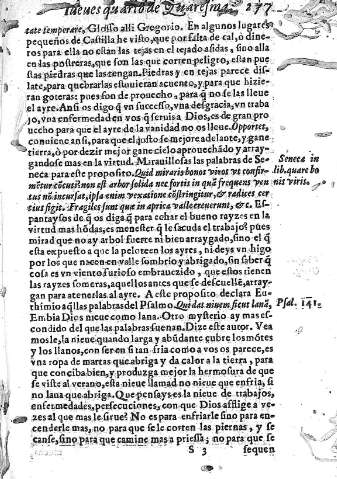 Iueues quarto de Quaresma. 277
tate temperate, Glosso alli Gregorio. En algunos lugares
pequeños de Castilla he visto, que por falta de cal, ô dine-
ros para ella no estàn las tejas en el tejado asidas, sino alla
en las postreras, que son las que corren peligro, estàn pue
stas piedras que las tengan. Piedras y en tejas parece dis-
late, para quebrarlas estuuieran acuento, y para que hizie-
ran goteras: pues son de prouecho, para q̃ no se las lleue
el ayre. Ansi os digo q̃ vn successo, vna desgracia, vn traba
jo, vna enfermedad en vos q̃ seruis a Dios, es de gran pro
uecho para que el ayre de la vanidad no os lleue. Oportet,
conuiene ansi, para que el justo se mejore adelante, y gane
tierra, ò por dezir mejor gane cielo aprouechãdo y array-
gandose mas en la virtud. Marauillosas las palabras de Se-
neca para este proposito. Quid miraris bonos viros vt confir-
mẽtur cõcuti? non est arbor solida nec fortis in quã frequens ven
tus nõ incursat, ipsa enim vexatione cõstringitur, & radices cer
tius figit. Fragiles sunt quæ in aprica valle creuerunt, &c. Es-
pantaysos de q̃ os diga q̃ para echar el bueno rayzes en la
virtud mas hõdas, es menester q̃ le sacuda el trabajo? pues
mirad que no ay arbol fuerte ni bien arraygado, sino el q̃
esta expuesto a que la peloteen los ayres, ni deys vn higo
por los que nacen en valle sombrio y abrigado, sin saber q̃
cosa es vn viento furioso embrauezido, que estos tienen
las rayzes someras, aquellos antes que se descuelle, array-
gan para atenerlas al ayre. A este proposito declara Eu-
thimio aq̃llas palabras del Psalmo. Qui dat niuem sicut lanã.
Embia Dios nieue como lana. Otro mysterio ay mas es-
condido del que las palabras suenan. Dize este autor. Vea
mosle, la nieue quando larga y abũdante cubre los mõtes
y los llanos, con ser en si tan fria como a vos os parece, es
vna ropa de martas que abriga y da calor a la tierra, para
que conciba bien, y produzga mejor la hermosura de que
se viste al verano, esta nieue llamad no nieue que enfria, si
no lana que abriga. Que pensays es la nieue de trabajos,
enfermedades, persecuciones, con que Dios afflige a ve-
zes al que mas le sirue? No es para enfriarle sino para en-
cenderle mas, no para que se le corten las piernas, y se
canse, sino para que camine mas a priessa; no para que se
S 3 sequen
Seneca in
lib. quare bo
nis viris.
Psal. 141.